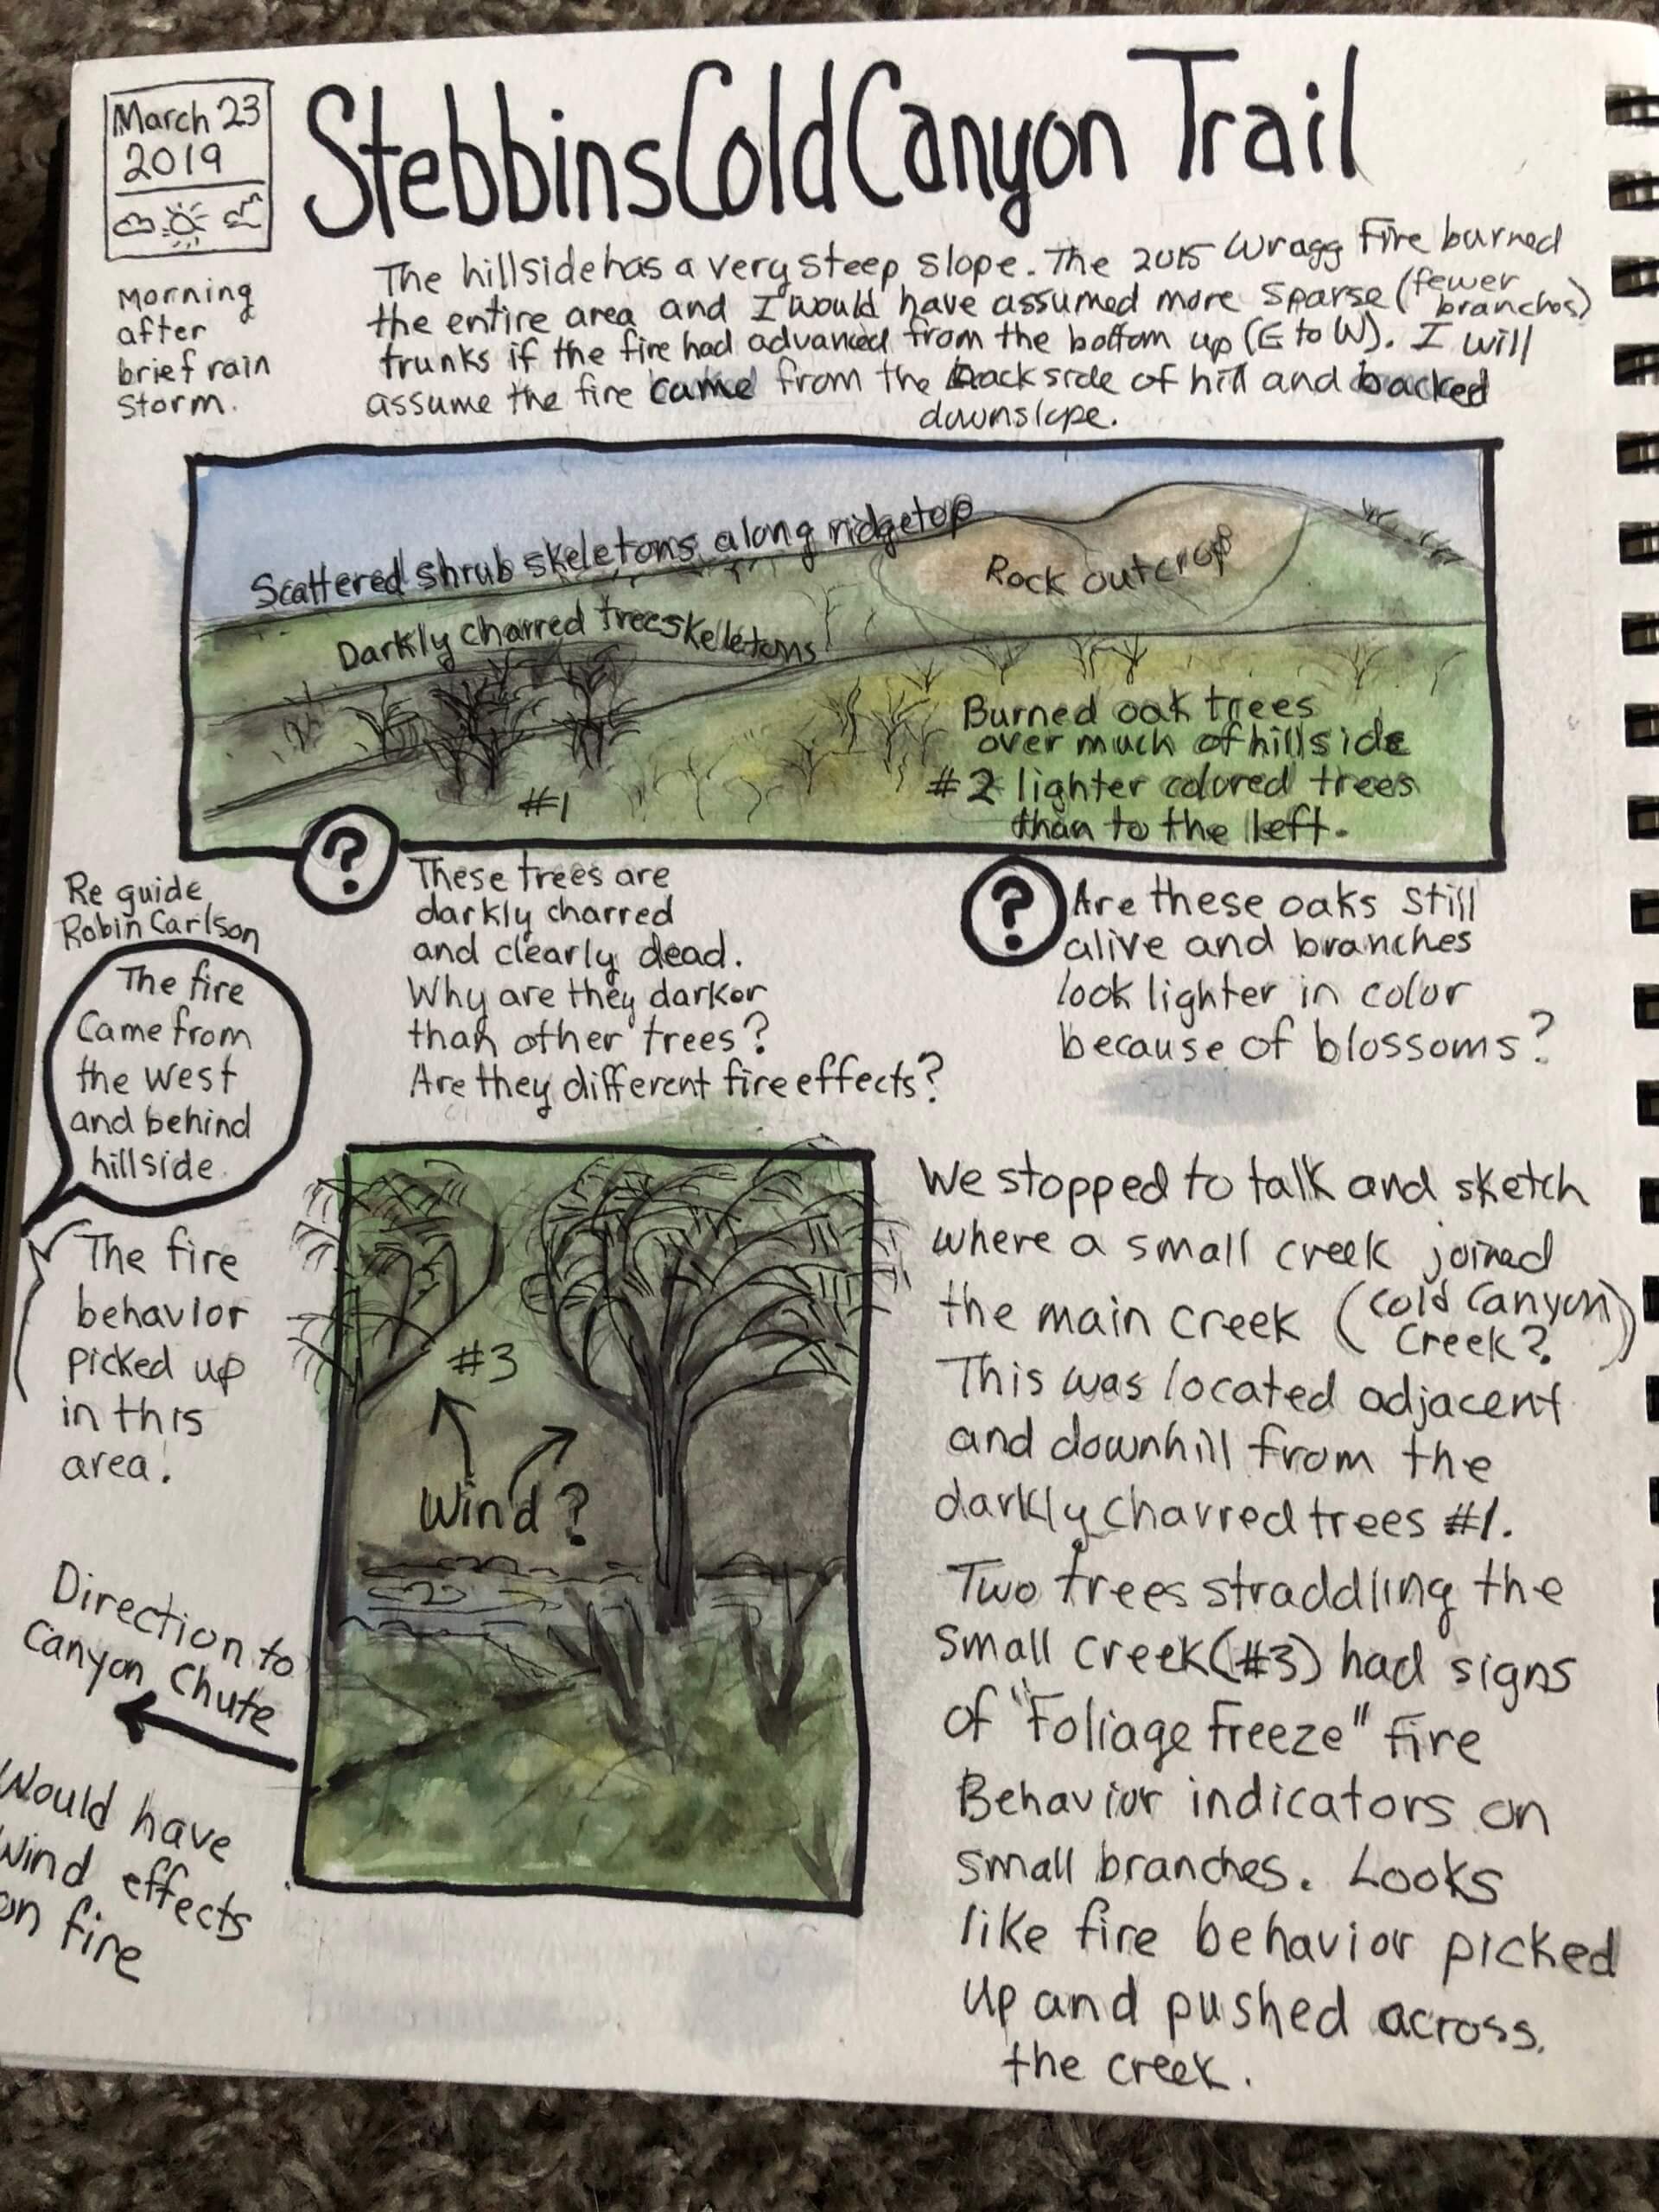 March 23
2019
Stebbins Cold Canyon Trail
Morning
after
brief rain
storm.
The hillside has a very steep slope. The 2015 Wragg Fire burned
the entire area and I would have assumed more sparse (fewer branches)
trunks if the fire had advanced from the bottom up (E to W). I will
assume the fire came from the backside of hill and backed
downslope.
Scattered shrub skeletons along ridgetop
Rock outcrop
Darkly charred tree skeletons
Burned oak trees
over much of hillside
#2 lighter colored trees
than to the left.
#1
?
These trees are
darkly charred
and clearly dead.
Why are they darker
than other trees?
Are they different fire effects?
?
Are these oaks still
alive and branches
look lighter in color
because of blossoms?
Re guide
Robin Carlson
The fire
came from
the west
and behind
hillside.
The fire
behavior
picked up
in this
area!
#3
Wind?
Direction to
Canyon Chute
Would have
wind effects
on fire
We stopped to talk and sketch
where a small creek joined
the main creek (Cold Canyon
Creek?)
This was located adjacent
and downhill from the
darkly charred trees #1.
Two trees straddling the
small creek (#3) had signs
of "Foliage Freeze" Fire
Behavior indicators on
small branches. Looks
like fire behavior picked
up and pushed across.
the creek.